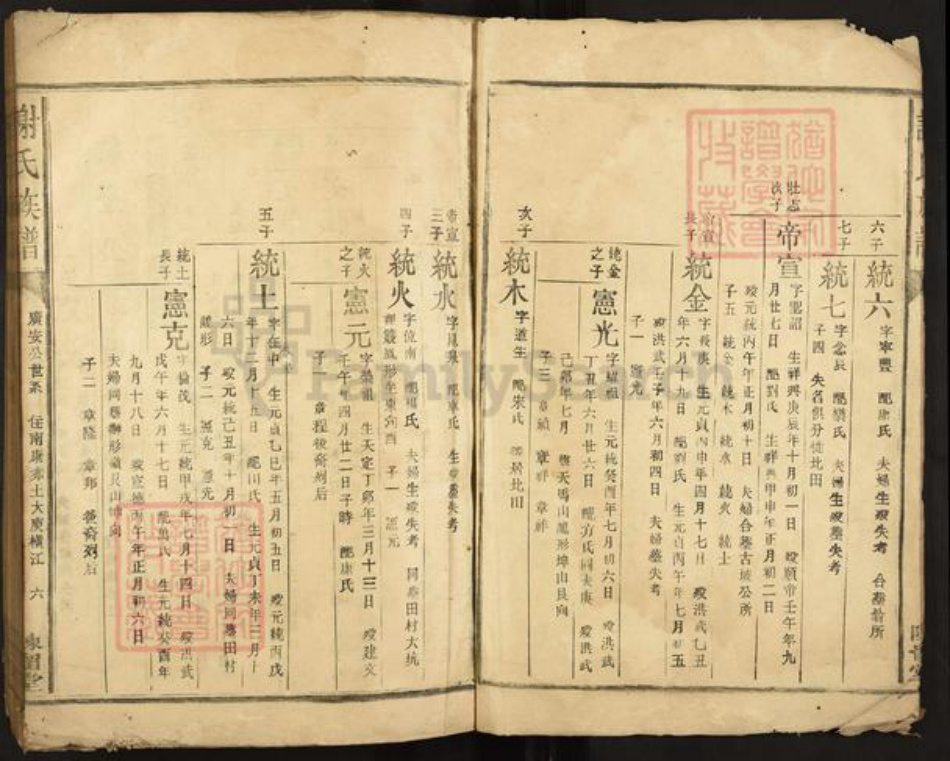 六子
統六 字寧豐 配康氏 夫婦生歿失考 合葬
七子
統七 字念辰 配樂氏 夫婦生歿葬失考
子四 失名俱分徙北田
帝宣 字聖詔 生祥興庚辰年十月初一日 歿順帝壬午年九
月廿七日 配劉氏 生祥興甲申年正月初二日
歿元統丙午年正月初十日 夫婦合葬古坡公所
子五 統金 統木 統水 統火 統土
帝宣長子
統金 字長庚 生元貞丙申年四月十七日 歿洪武乙丑
年六月十九日 配劉氏 生元貞丙午年七月初五
歿洪武壬子年六月初四日 夫婦葬失考
子一 憲光
統金之子
憲光 字耀祖 生元統癸酉年七月初六日 歿洪武
丁丑年六月廿六日 配方氏同夫庚 歿洪武
己卯年七月 葬天馬山鳳形坤山艮向
子三 章禎 章祥 章祚
次子
統木 字道生 配宋氏 居北田
帝宣三子
統水 配章氏 生歿葬失考
四子
統火 字位南 配楊氏 夫婦生歿失考 同葬田村大坑
形坐東向酉 子一 憲元
統火之子
憲元 字榮祖 生天定丁卯年三月十三日 歿建文
壬午年四月廿二日子時 配康氏
子 章程後裔列后
五子
統土 字在中 生元貞乙巳年五月初五日 歿元統丙戌
年十二月十五日 配田氏 生元貞丁未年三月十
六日 歿元統己丑年十月初一日 夫婦同葬田村
形 子二 憲克 憲光
統土長子
憲克 字倫茂 生元統甲戌年七月十四日 歿洪武
戊午年六月十七日 配萬氏 生元統癸酉年
九月十八日 歿宣德丙午年正月初六日
夫婦同葬獅形嶺艮山坤向
子二 章隆 章邦 後裔列后
謝氏族譜
廣安公世系 住南康赤土大庾橫江 六